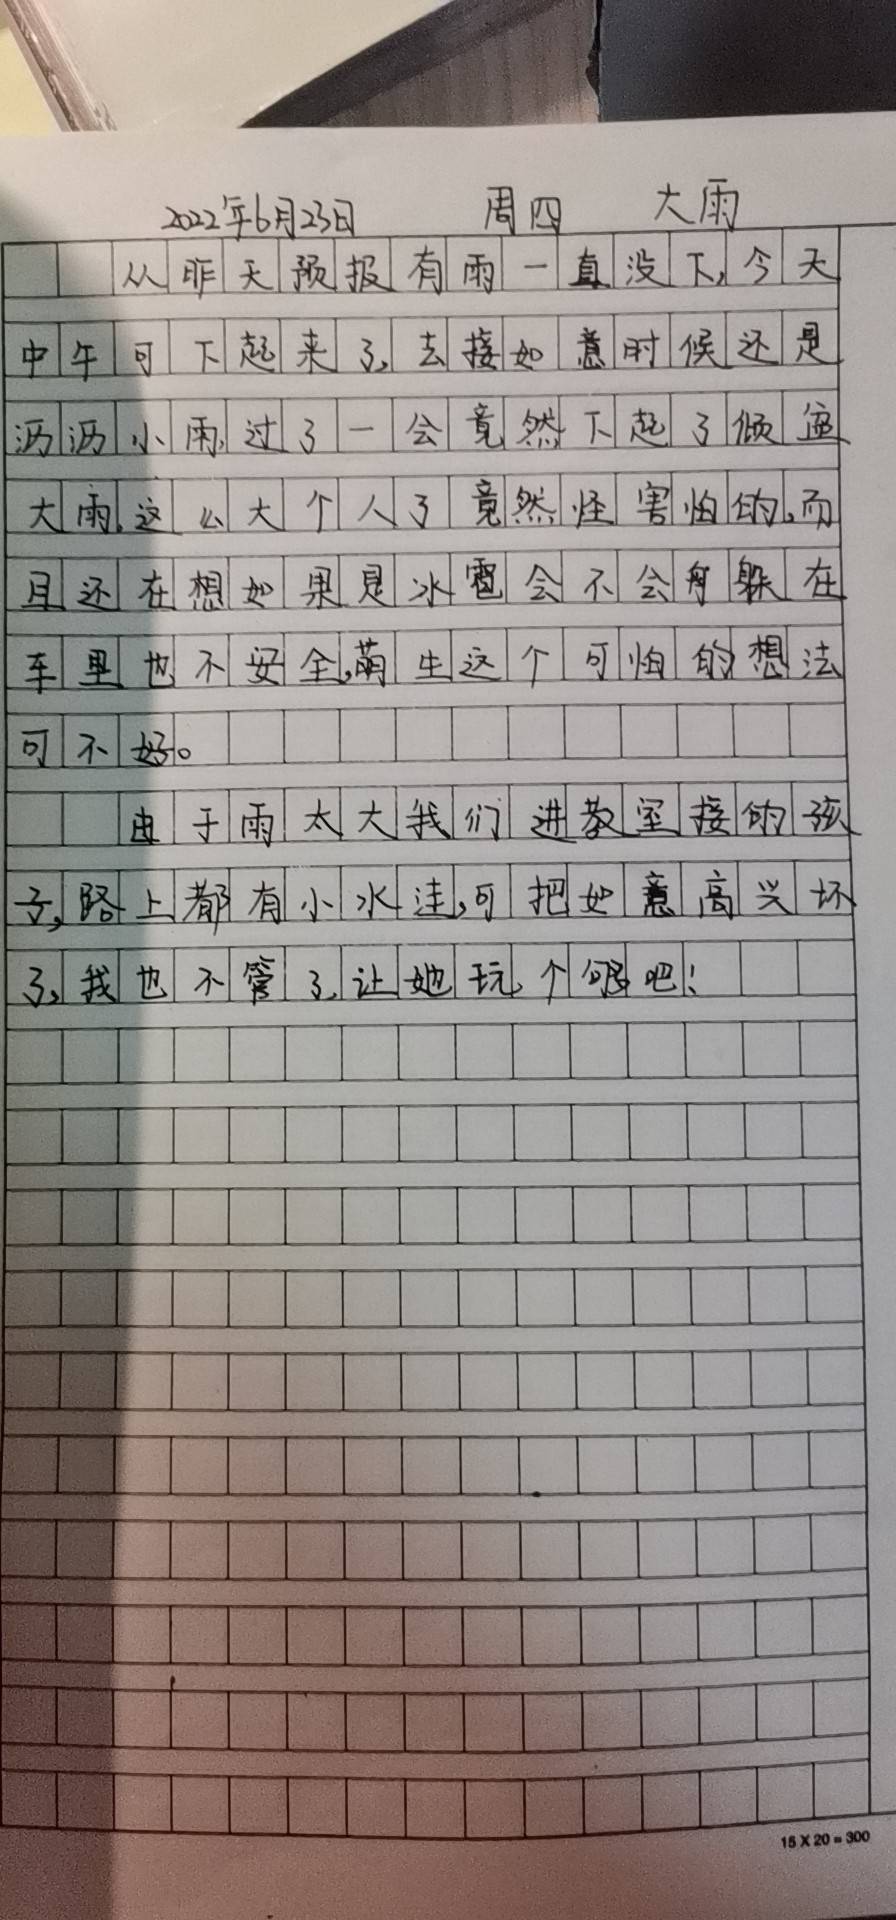 2022年6月23日 周四 大雨
从昨天预报有雨一直没下,今天
中午可下起来了,去接如意时候还是
沥沥小雨,过了一会竟然下起了倾盆
大雨,这么大个人了竟然怪害怕的,而
且还在想如果是冰雹会不会躲在
车里也不安全,萌生这个可怕的想法
可不好。
由于雨太大我们进教室接的孩
子,路上都有小水洼,可把如意高兴坏
了,我也不管了,让她玩个够吧!
15 X 20 = 300